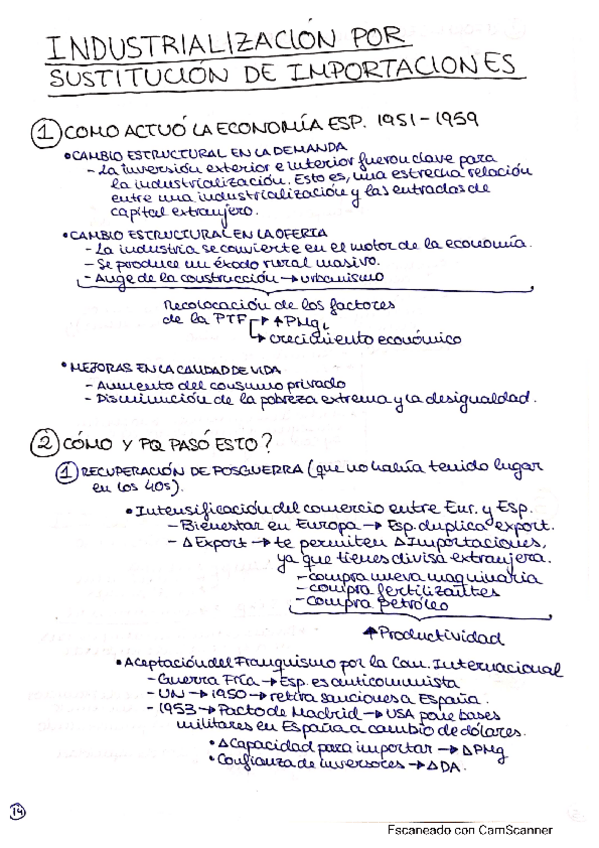 INDUSTRIALIZACIÓN POR
SUSTITUCIÓN DE IMPORTACIONES
① COMO ACTUÓ LA ECONOMÍA ESP. 1951-1959
• CAMBIO ESTRUCTURAL EN LA DEMANDA
- La inversión exterior e interior fueron clave para
la industrialización. Esto es, una estrecha relación
entre una industrialización y las entradas de
capital extranjero.
• CAMBIO ESTRUCTURAL EN LA OFERTA
- La industria se convierte en el motor de la economía.
- Se produce un éxodo rural masivo.
- Auge de la construcción → urbanismo
Recolocación de los factores
de la PTF → ↑PMgL
→ crecimiento económico
• MEJORAS EN LA CALIDAD DE VIDA
- Aumento del consumo privado
- Disminución de la pobreza extrema y la desigualdad.
② CÓMO Y PQ PASÓ ESTO?
① RECUPERACIÓN DE POSGUERRA (que no había tenido lugar
en los 40s).
• Intensificación del comercio entre Eur. y Esp.
- Bienestar en Europa → Esp. duplica export.
- Δ Export → te permiten Δ Importaciones,
ya que tienes divisa extranjera.
- compra nueva maquinaria
- compra fertilizantes
- compra petróleo
↑ Productividad
• Aceptación del Franquismo por la Com. Internacional
- Guerra Fría → Esp. es anticomunista
- UN → 1950 → retira sanciones a España.
- 1953 → Pacto de Madrid → USA pone bases
militares en España a cambio de dólares.
• Δ Capacidad para importar → Δ PMg
• Confianza de inversores → Δ DA.
14
Escaneado con CamScanner